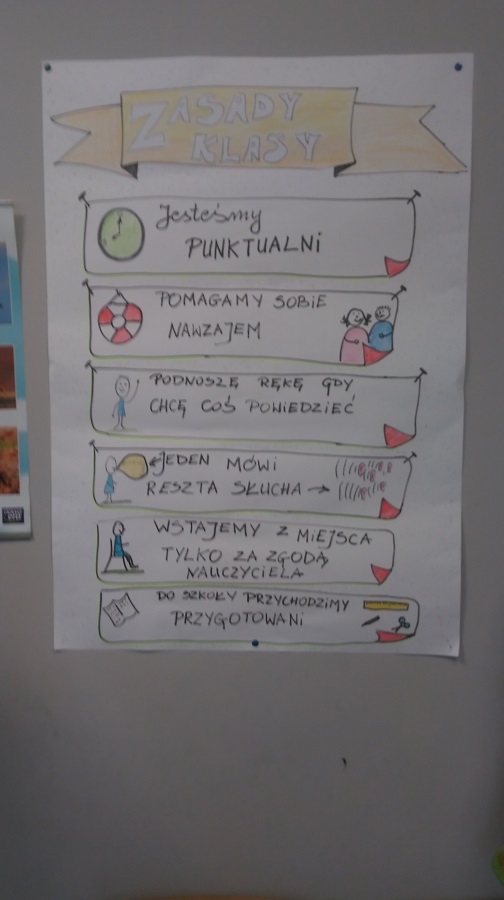 ZASADY
KLASY
Jesteśmy
PUNKTUALNI
POMAGAMY SOBIE
NAWZAJEM
PODNOSZĘ RĘKĘ GDY
CHCĘ COŚ POWIEDZIEĆ
JEDEN MÓWI
RESZTA SŁUCHA →
WSTAJEMY Z MIEJSCA
TYLKO ZA ZGODĄ
NAUCZYCIELA
DO SZKOŁY PRZYCHODZIMY
PRZYGOTOWANI